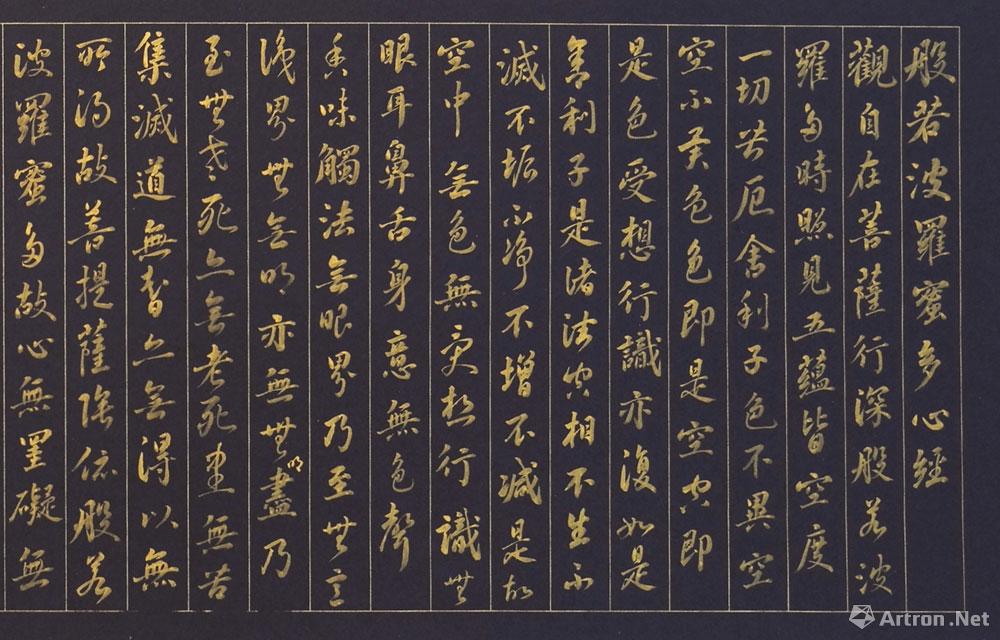 般若波羅蜜多心經
觀自在菩薩行深般若波
羅多時照見五蘊皆空度
一切苦厄舍利子色不異空
空不異色色即是空空即
是色受想行識亦復如是
舍利子是諸法空相不生不
滅不垢不净不增不減是故
空中無色無受想行識無
眼耳鼻舌身意無色聲
香味觸法無眼界乃至無意
識界無無明亦無無明盡乃
至無老死亦無老死盡無苦
集滅道無智亦無得以無
所得故菩提薩埵依般若
波羅蜜多故心無罣礙無
Artron.Net